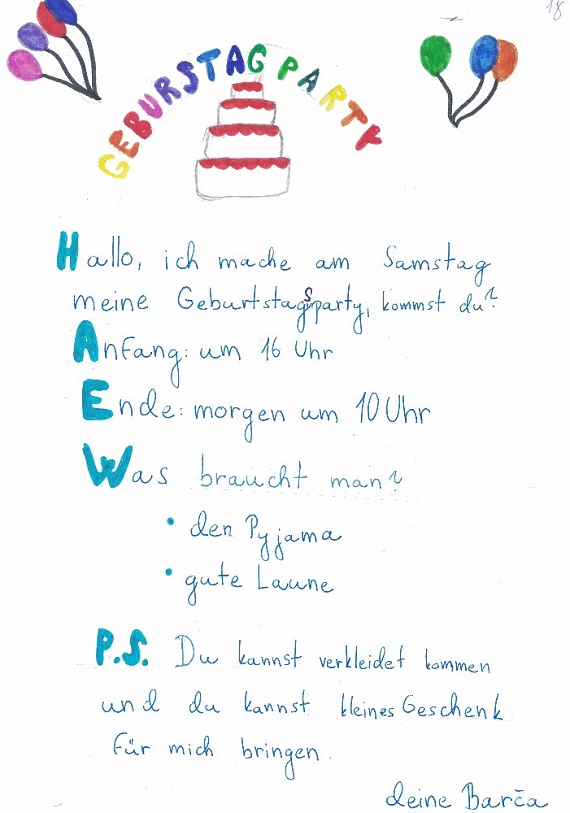 18
GEBURSTAG PARTY
Hallo, ich mache am Samstag
meine Geburtstagsparty, kommst du?
Anfang: um 16 Uhr
Ende: morgen um 10 Uhr
Was braucht man?
• den Pyjama
• gute Laune
P.S. Du kannst verkleidet kommen
und du kannst kleines Geschenk
für mich bringen.
deine Barča